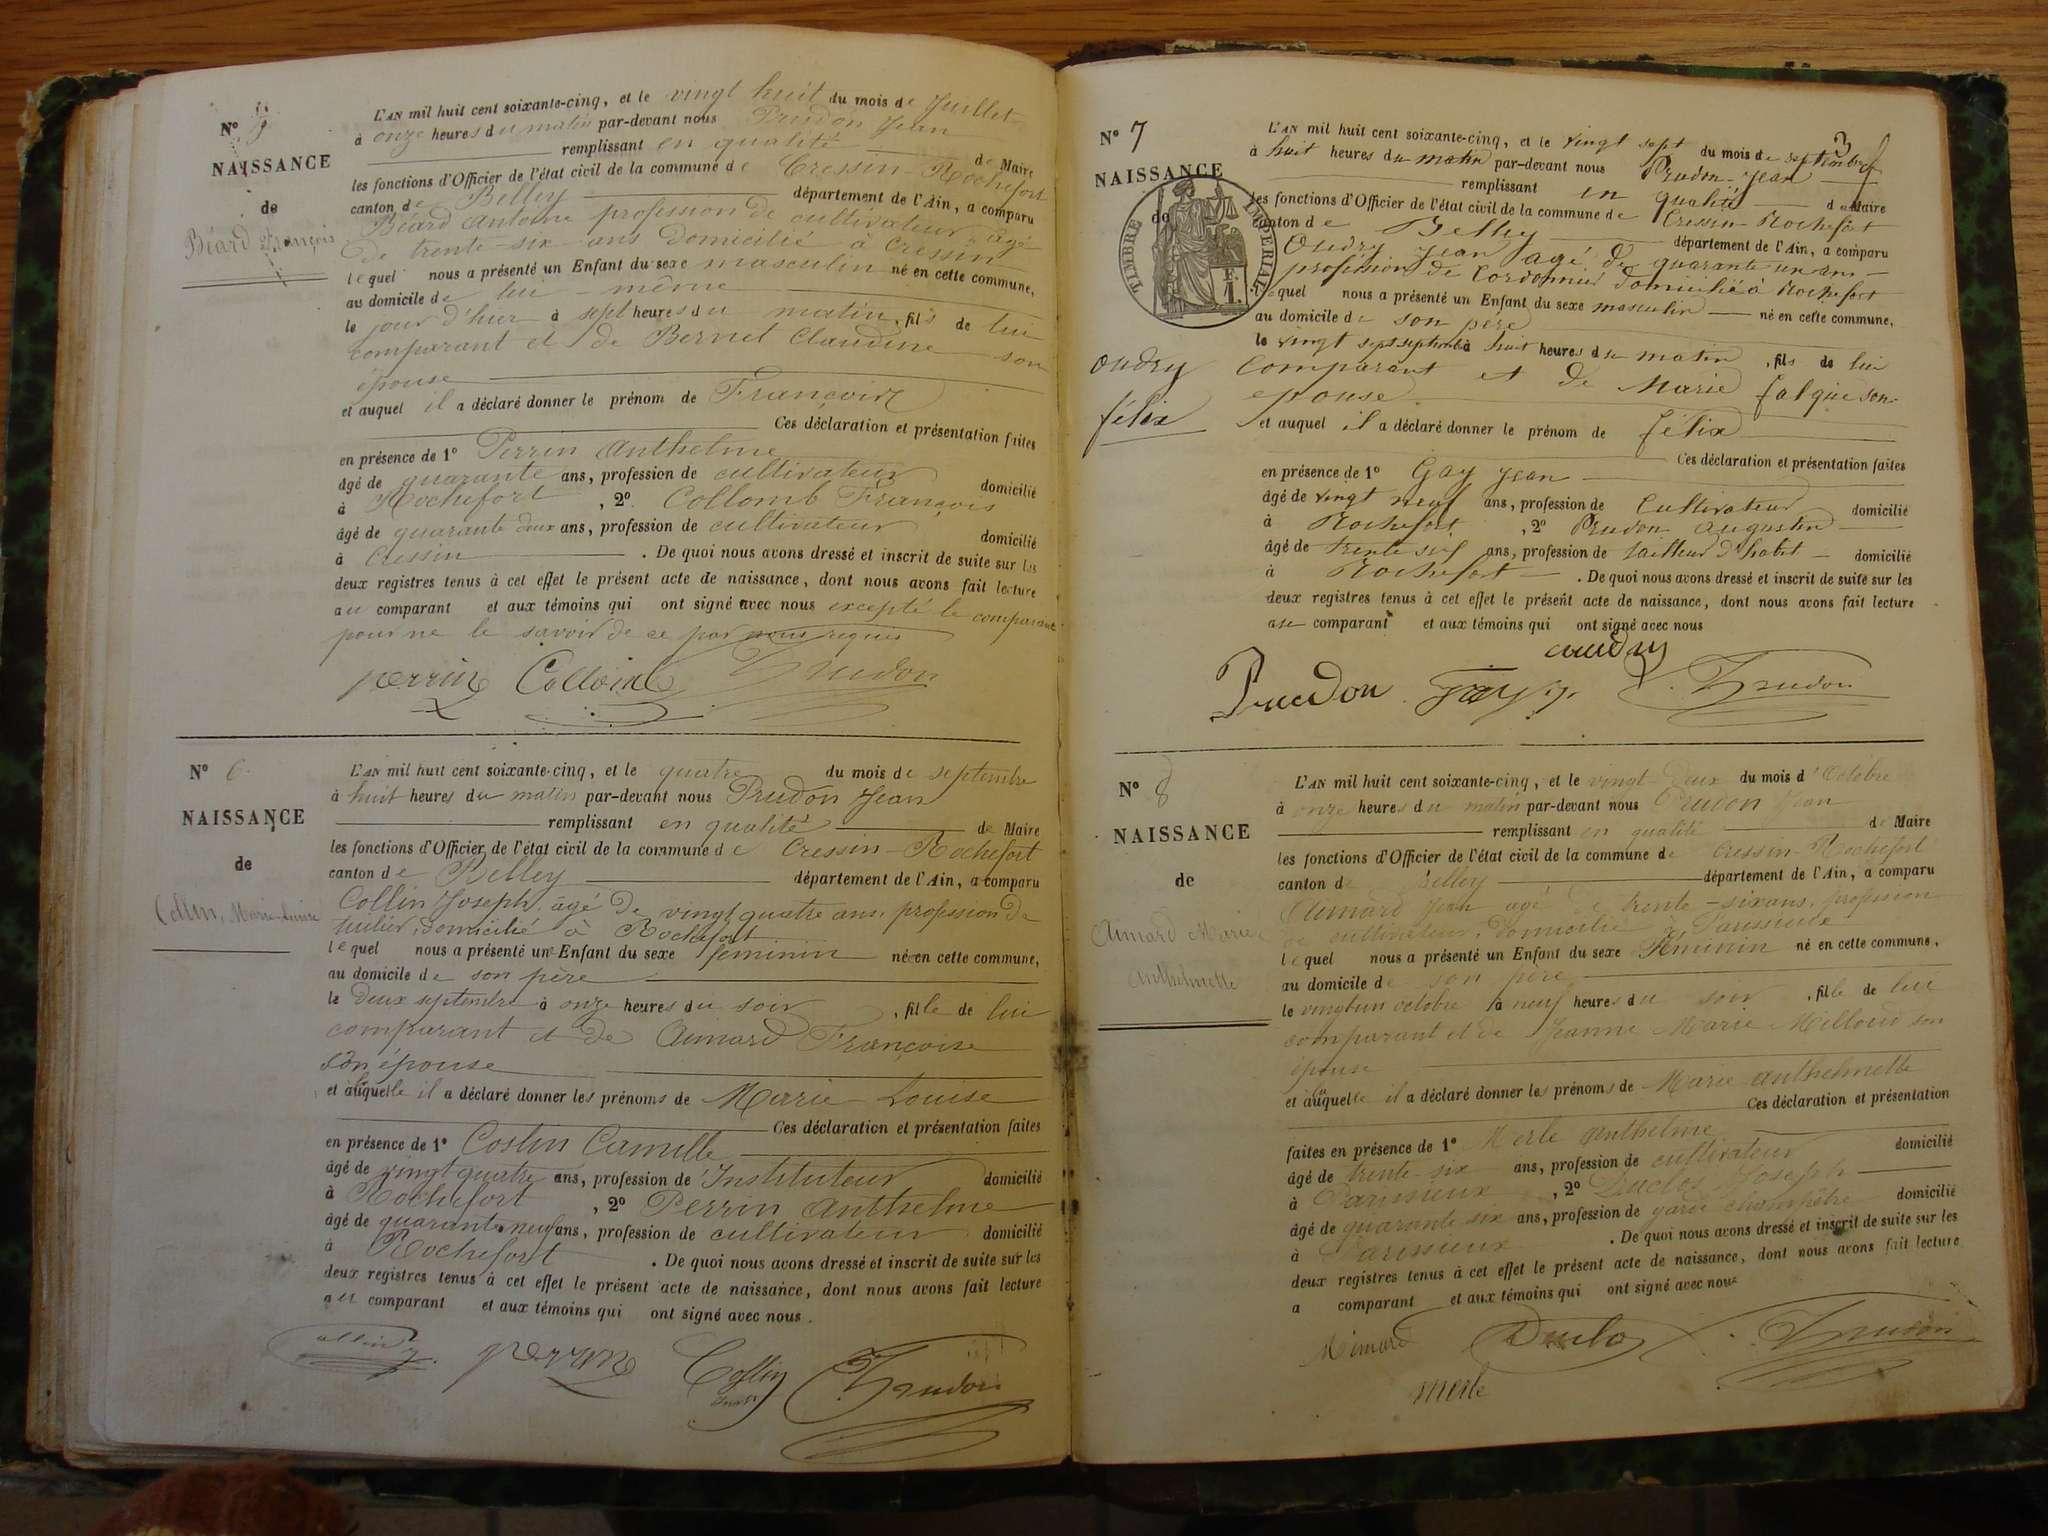 N° 5
NAISSANCE
de
Béard François
L'AN mil huit cent soixante-cinq, et le vingt huit du mois de Juillet
à onze heures du matin par-devant nous Prudon Jean
remplissant en qualité de Maire
les fonctions d'Officier de l'état civil de la commune de Cressin-Rochefort
canton de Belley département de l'Ain, a comparu
Béard Antoine profession de cultivateur, agé
de trente-six ans domicilié à Cressin
lequel nous a présenté un Enfant du sexe masculin né en cette commune,
au domicile de lui même
le jour d'hier à sept heures du matin, fils de lui
comparant et de Bernel Claudine son
épouse
et auquel il a déclaré donner le prénom de François
Ces déclaration et présentation faites
en présence de 1° Perrin Anthelme
âgé de quarante ans, profession de cultivateur domicilié
à Rochefort, 2° Collomb François
âgé de quarante deux ans, profession de cultivateur domicilié
à Cressin. De quoi nous avons dressé et inscrit de suite sur les
deux registres tenus à cet effet le présent acte de naissance, dont nous avons fait lecture
au comparant et aux témoins qui ont signé avec nous excepté le comparant
pour ne le savoir de ce par nous requis
perrin Collomb Prudon
N° 6
NAISSANCE
de
Collin, Marie-Louise
L'AN mil huit cent soixante-cinq, et le quatre du mois de septembre
à huit heures du matin par-devant nous Prudon Jean
remplissant en qualité de Maire
les fonctions d'Officier de l'état civil de la commune de Cressin-Rochefort
canton de Belley département de l'Ain, a comparu
Collin Joseph, âgé de vingt quatre ans, profession de
tuilier, domicilié à Rochefort
lequel nous a présenté une Enfant du sexe feminin née en cette commune,
au domicile de son père
le deux septembre à onze heures du soir, fille de lui
comparant et de Aimard Françoise
son épouse
et à laquelle il a déclaré donner les prénoms de Marie Louise
Ces déclaration et présentation faites
en présence de 1° Costin Camille
âgé de vingt quatre ans, profession d'Instituteur domicilié
à Rochefort, 2° Perrin Anthelme
âgé de quarante neuf ans, profession de cultivateur domicilié
à Rochefort. De quoi nous avons dressé et inscrit de suite sur les
deux registres tenus à cet effet le présent acte de naissance, dont nous avons fait lecture
au comparant et aux témoins qui ont signé avec nous.
perrin Costin Prudon
3
N° 7
NAISSANCE
de
TIMBRE IMPÉRIAL
oudry
félix
L'AN mil huit cent soixante-cinq, et le vingt sept du mois de septembre
à huit heures du matin par-devant nous Prudon-Jean
remplissant en qualité de Maire
les fonctions d'Officier de l'état civil de la commune de Cressin-Rochefort
canton de Belley département de l'Ain, a comparu
Oudry Jean agé de quarante un ans
profession de Cordonnier domicilié à Rochefort
lequel nous a présenté un Enfant du sexe masculin né en cette commune,
au domicile de son père
le vingt sept septembre à huit heures du matin, fils de lui
comparant et de Marie falque son
epouse
et auquel il a déclaré donner le prénom de félix
Ces déclaration et présentation faites
en présence de 1° Gay Jean
âgé de vingt neuf ans, profession de Cultivateur domicilié
à Rochefort, 2° Prudon Augustin
âgé de trente six ans, profession de tailleur d'habit domicilié
à Rochefort. De quoi nous avons dressé et inscrit de suite sur les
deux registres tenus à cet effet le présent acte de naissance, dont nous avons fait lecture
au comparant et aux témoins qui ont signé avec nous
oudry
Prudon Gay J. Prudon
N° 8
NAISSANCE
de
Aimard Marie
Anthelmette
L'AN mil huit cent soixante-cinq, et le vingt-deux du mois d'Octobre
à onze heures du matin par-devant nous Prudon Jean
remplissant en qualité de Maire
les fonctions d'Officier de l'état civil de la commune de Cressin-Rochefort
canton de Belley département de l'Ain, a comparu
Aimard Jean agé de trente-six ans, profession
de cultivateur, domicilié à Parissieux
lequel nous a présenté un Enfant du sexe féminin né en cette commune,
au domicile de son père
le vingt un octobre à neuf heures du soir, fille de lui
comparant et de Jeanne Marie Milloud son
épouse
et à laquelle il a déclaré donner les prénoms de Marie Anthelmette
Ces déclaration et présentation
faites en présence de 1° Merle Anthelme
âgé de trente-six ans, profession de cultivateur domicilié
à Parissieux, 2° Duclos Joseph
âgé de quarante six ans, profession de garde champêtre domicilié
à Parissieux. De quoi nous avons dressé et inscrit de suite sur les
deux registres tenus à cet effet le présent acte de naissance, dont nous avons fait lecture
a comparant et aux témoins qui ont signé avec nous
Duclos Prudon
merle